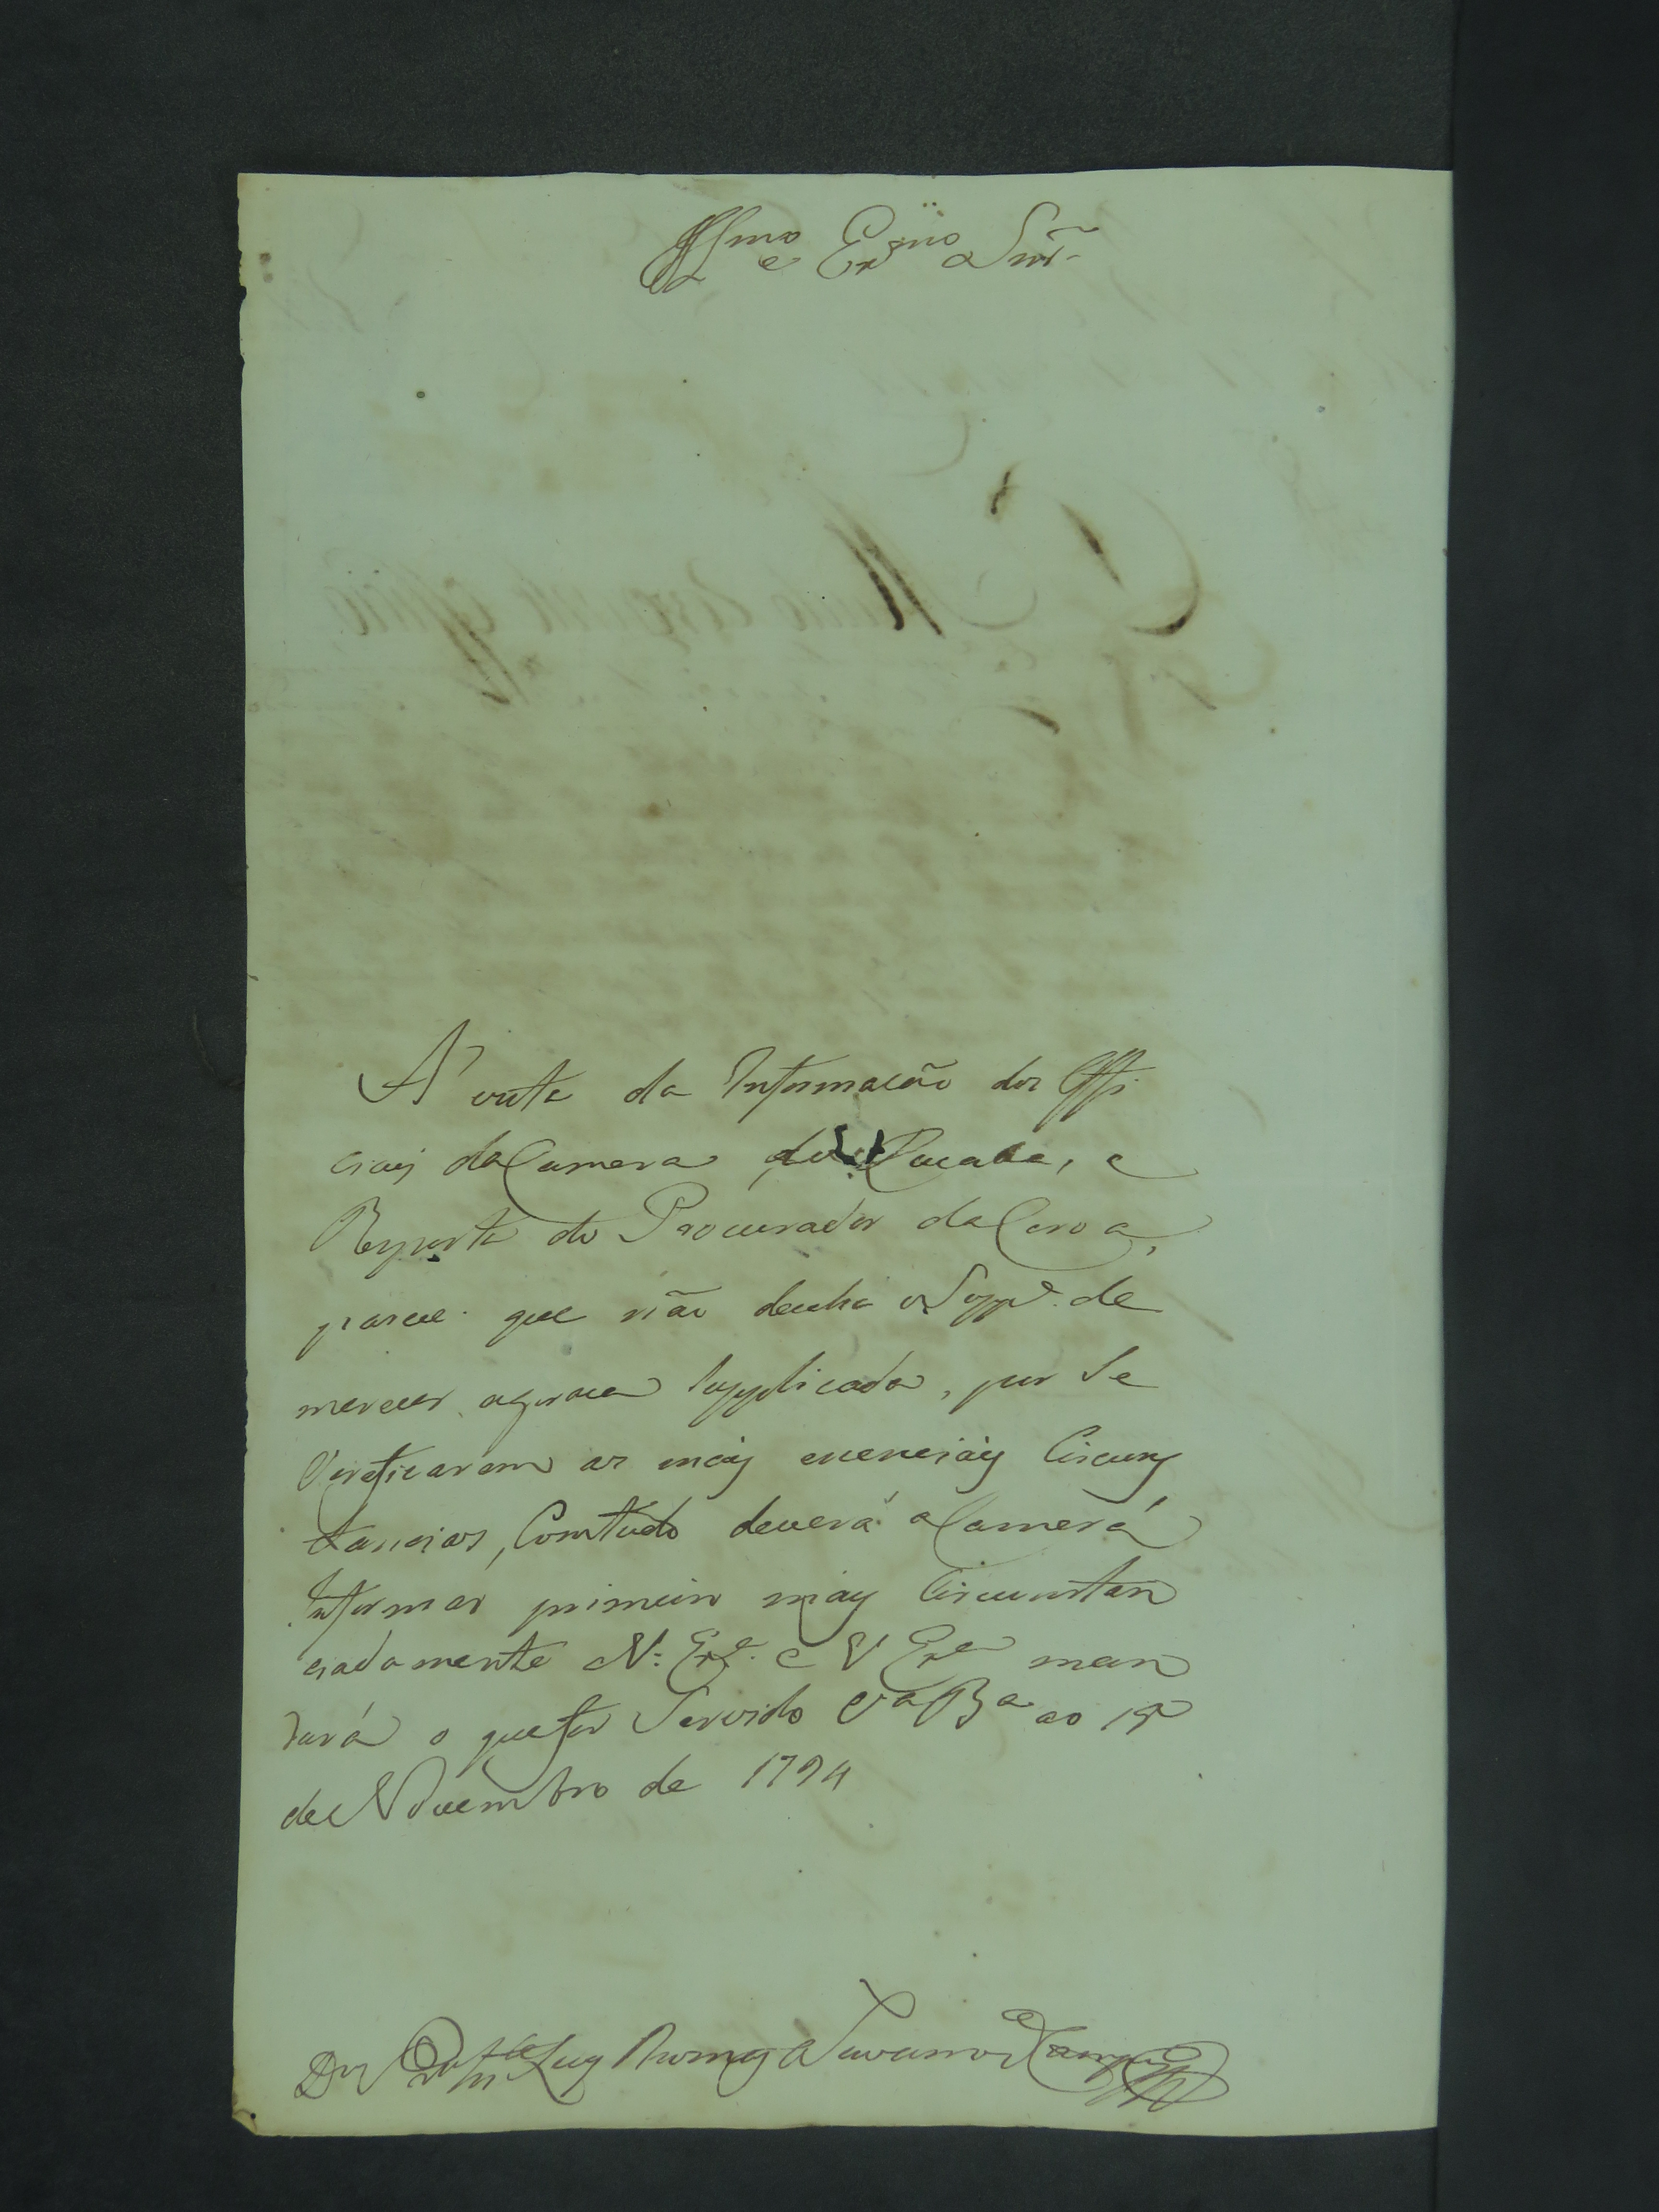 Illmo e Exmo Snr̃
A' vista da Informacão dos Offi
ciaes da Camera de Cuaba, e
Reposta do Procurador da Coroa,
parece que não deicha o Suppe. de
merecer agraca Supplicada, por Se
Vereficarem as maiz ecenciaiz Circuns
tancias, Comtudo deverá a Camerá
Informar primeiro maiz Circunstan
ciadamente V. Exa. e V Exa man
dará o que for Servido Va Ba ao 18
de Novembro de 1794
Dor Luiz Thomaz Navarro de Campos